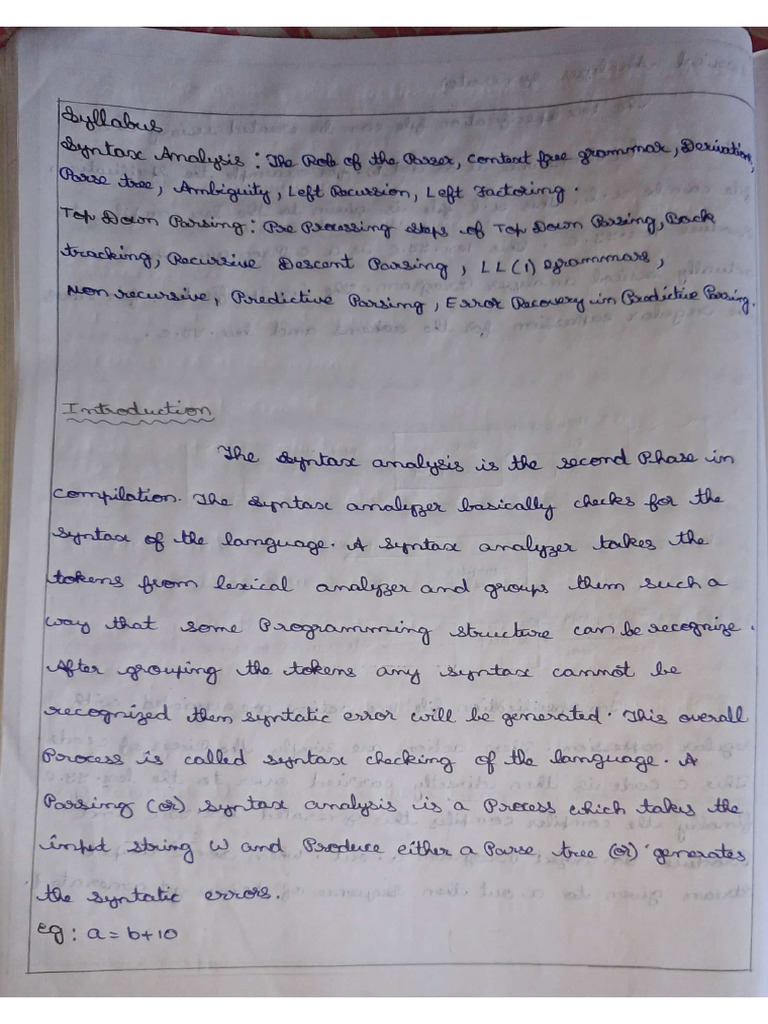 Syllabus
Syntax Analysis : The Role of the Parser, Context free grammar, Derivation,
Parse tree, Ambiguity, Left Recursion, Left Factoring.
Top Down Parsing : Pre Processing steps of Top Down Parsing, Back
tracking, Recursive Descent Parsing, LL(1) grammars,
Non recursive, Predictive Parsing, Error Recovery in Predictive Parsing.
Introduction
The Syntax analysis is the second Phase in
compilation. The syntax analyzer basically checks for the
syntax of the language. A syntax analyzer takes the
tokens from lexical analyzer and groups them such a
way that some Programming structure can be recognize.
After grouping the tokens any syntax cannot be
recognized then syntatic error will be generated. This overall
Process is called syntax checking of the language. A
Parsing (or) syntax analysis is a Process which takes the
input string W and Produce either a Parse tree (or) generates
the syntatic errors.
eg : a = b+10